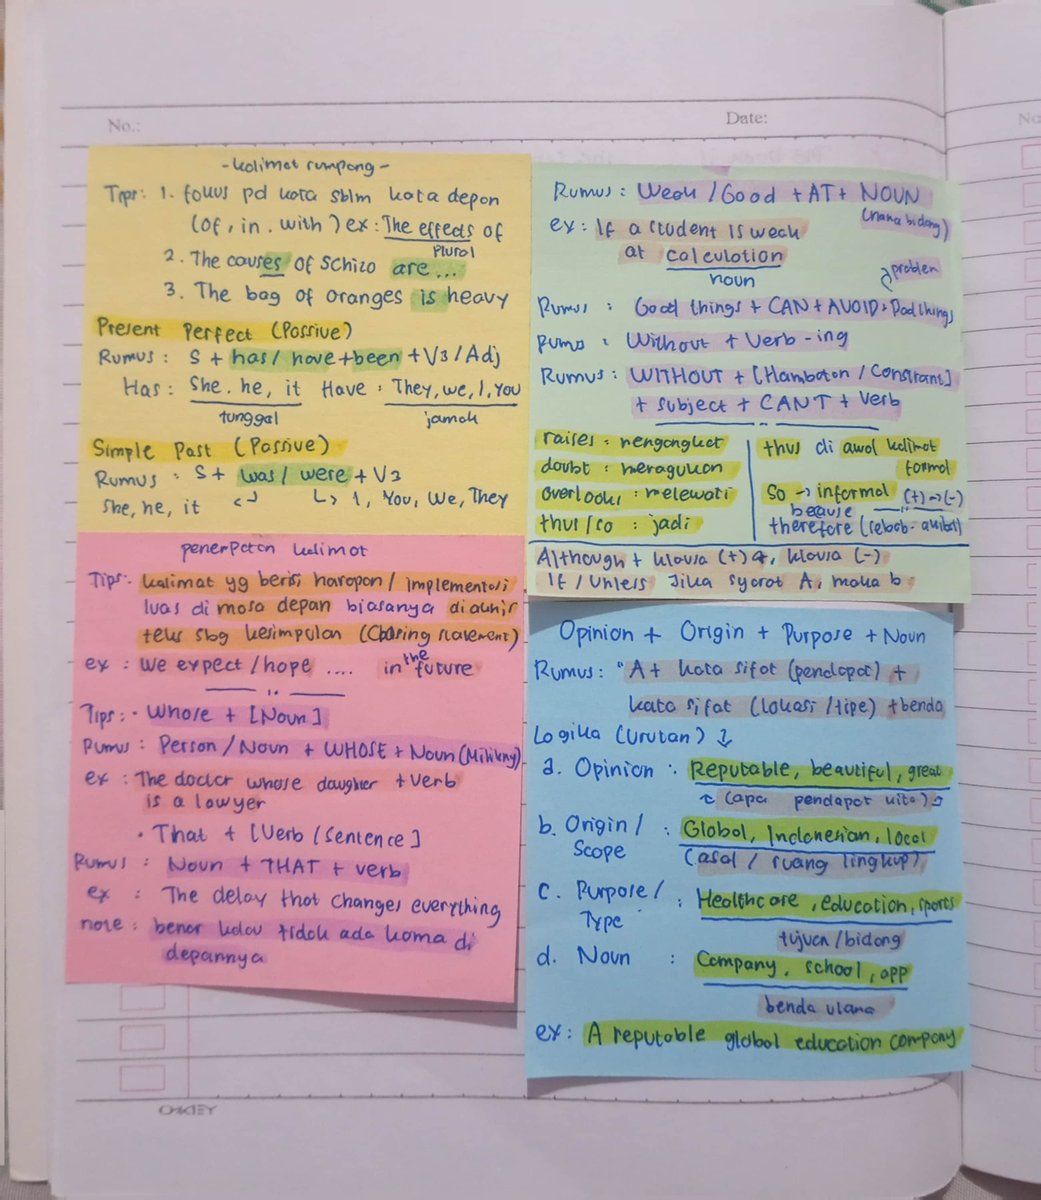 No.:
Date:
No
- kalimat rumpang -
Tips: 1. fokus pd kata sblm kata depan
(of, in. with) ex: The effects of
plural
2. The causes of schizo are ...
3. The bag of oranges is heavy
Present Perfect (Passive)
Rumus: S + has/ have + been + V3 / Adj
Has: She. he, it Have: They, we, I, You
tunggal jamak
Simple Past (Passive)
Rumus: S + was/ were + V3
She, he, it ↵ ↳ I, You, We, They
Rumus: Weak / Good + AT + NOUN
(nama bidang)
ex: If a student is weak
at calculation
noun
problem
Rumus: Good things + CAN + AVOID + Bad things
Rumus: Without + Verb -ing
Rumus: WITHOUT + [Hambatan / Constraint]
+ subject + CANT + Verb
raises: mengangkat
doubt: meragukan
overlooks: melewati
thus/so: jadi
thus di awal kalimat
formal
so → informal (+) → (-)
because
therefore (sebab-akibat)
Although + klausa (+), klausa (-)
If / Unless Jika syarat A, maka b
penerpatan kalimat
Tips: kalimat yg berisi harapan / implementasi
luas di masa depan biasanya di akhir
teks sbg kesimpulan (Closing statement)
ex: We expect / hope .... in the future
Tips: • Whose + [Noun]
Rumus: Person / Noun + WHOSE + Noun (Miliknya)
ex: The doctor whose daughter + verb
is a lawyer
• That + [Verb / Sentence]
Rumus: Noun + THAT + verb
ex: The delay that changes everything
note: benar kalau tidak ada koma di
depannya
Opinion + Origin + Purpose + Noun
Rumus: "A + kata sifat (pendapat) +
kata sifat (lokasi / tipe) + benda
Logika (Urutan) ↓
a. Opinion: Reputable, beautiful, great
(apa pendapat kita)
b. Origin / Scope: Global, Indonesian, local
(asal / ruang lingkup)
c. Purpose / Type: Healthcare, education, sports
tujuan / bidang
d. Noun: Company, school, app
benda utama
ex: A reputable global education company
OKEY